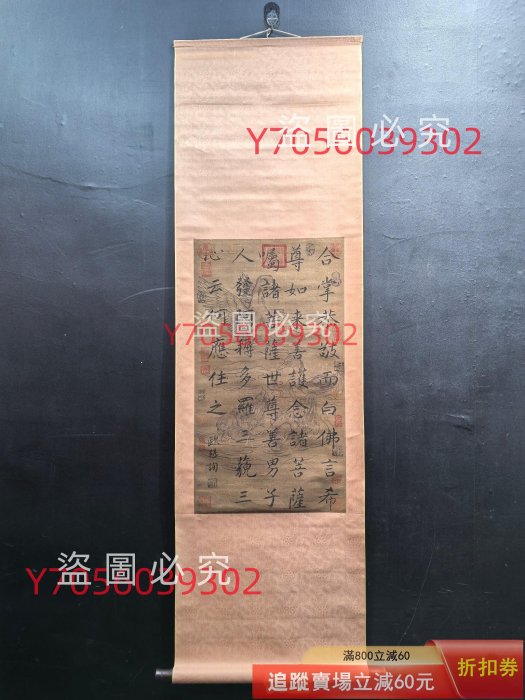 盜圖必究
Y7056039302
合掌恭敬而白佛言希
尊如来善護念諸菩薩
囑諸菩薩世尊善男子
人發 耨多羅三藐三
心云何應住之
歐陽詢
盜圖必究
Y7056039302
盜圖必究
Y7056039302
滿800立減60
追蹤賣場立減60元
折扣券